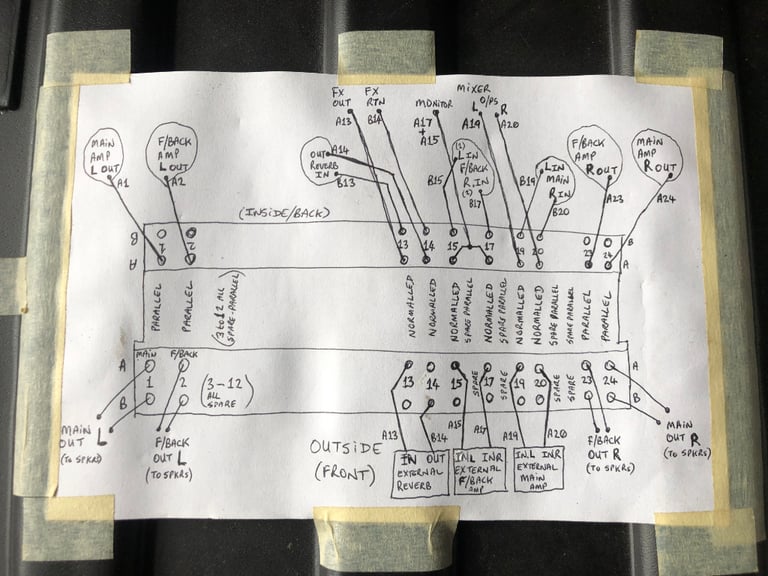 FX OUT
A13
FX RTN
B14
MONITOR
A17 + A15
MIXER
L O/PS R
A19
A20
MAIN AMP L OUT
A1
F/BACK AMP L OUT
A2
OUT
REVERB
IN
A14
B13
B15
(1)
L IN
F/BACK
R.IN
(3)
B17
B19
L IN
MAIN
R IN
B20
F/BACK AMP R OUT
A23
MAIN AMP R OUT
A24
(INSIDE/BACK)
B
1
2
13
14
15
17
19
20
23
24
B
A
A
PARALLEL
PARALLEL
(3 to 12 ALL SPARE-PARALLEL)
NORMALLED
NORMALLED
NORMALLED
SPARE PARALLEL
NORMALLED
SPARE PARALLEL
NORMALLED
NORMALLED
SPARE PARALLEL
SPARE PARALLEL
PARALLEL
PARALLEL
MAIN
F/BACK
A
1
2
(3-12 ALL SPARE)
13
14
15
SPARE
17
SPARE
19
20
SPARE
SPARE
23
24
A
B
B
MAIN OUT L
(TO SPKRS)
F/BACK OUT L
(TO SPKRS)
OUTSIDE
(FRONT)
A13
B14
A15
A17
A19
A20
IN OUT
EXTERNAL
REVERB
INL INR
EXTERNAL
F/BACK
AMP
INL INR
EXTERNAL
MAIN
AMP
F/BACK
OUT R
(TO SPKRS)
MAIN
OUT R
(TO SPKRS)